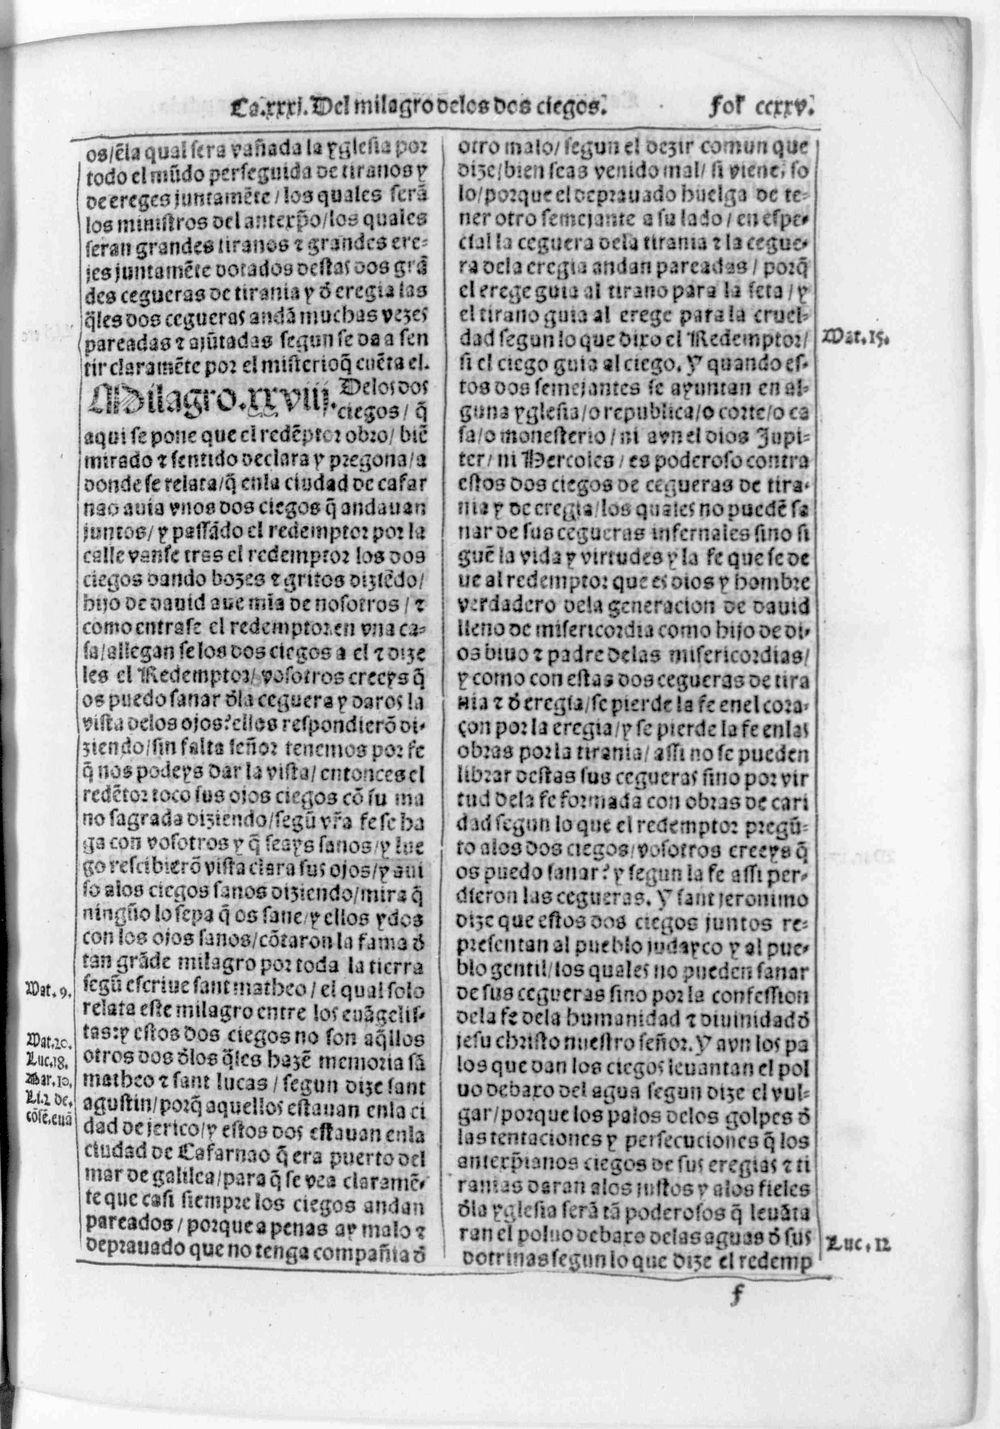 Ca.xxxj. Del milagro delos dos ciegos.
fol̃ ccxxv.
os/ẽla qual sera vañada la yglesia por
todo el mũdo perseguida de tiranos y
de ereges juntamẽte/los quales serã
los ministros del antexp̃o/los quales
seran grandes tiranos ⁊ grandes ere-
jes juntamẽte dotados destas dos grã
des cegueras de tirania y ð eregia las
q̃les dos cegueras andã muchas vezes
pareadas ⁊ ajũtadas segun se da a sen
tir claramẽte por el misterio q̃ cuẽta el.
Milagro.xxviij. Delos dos
ciegos/ q̃
aqui se pone que el redẽptor obro/ biẽ
mirado ⁊ sentido declara y pregona/a
donde se relata/q̃ enla ciudad de cafar
nao auia vnos dos ciegos q̃ andauan
juntos/ y passãdo el redemptor por la
calle vanse tras el redemptor los dos
ciegos dando bozes ⁊ gritos diziẽdo/
hijo de dauid aue mia de nosotros/ ⁊
como entrase el redemptor.en vna ca-
sa/allegan se los dos ciegos a el ⁊ dize
les el Redemptor/ vosotros creeys q̃
os puedo sanar ðla ceguera y daros la
vista delos ojos? ellos respondierõ di-
ziendo/sin falta señor tenemos por fe
q̃ nos podeys dar la vista/ entonces el
redẽtor toco sus ojos ciegos cõ su ma
no sagrada diziendo/segũ vr̃a fe se ha
ga con vosotros y q̃ seays sanos/y lue
go rescibierõ vista clara sus ojos/y aui
so alos ciegos sanos diziendo/mira q̃
ningũo lo sepa q̃ os sane/y ellos ydos
con los ojos sanos/cõtaron la fama ð
tan grãde milagro por toda la tierra
segũ escriue sant matheo/ el qual solo
relata este milagro entre los euãgelis-
tas:y estos dos ciegos no son aq̃llos
otros dos ðlos q̃les hazẽ memoria sã
matheo ⁊ sant lucas/ segun dize sant
agustin/porq̃ aquellos estauan enla ci
dad de jerico/y estos dos estauan enla
ciudad de Cafarnao q̃ era puerto del
mar de galilea/para q̃ se vea claramẽ-
te que casi siempre los ciegos andan
pareados/ porque a penas ay malo ⁊
deprauado que no tenga compañia ð
Mat. 9.
Mat.20.
Luc.18.
Mar.10.
Li.2 de.
cõsẽ.euã
otro malo/ segun el dezir comun que
dize/bien seas venido mal/ si vienes so
lo/porque el deprauado huelga de te-
ner otro semejante a su lado/ en espe-
cial la ceguera dela tirania ⁊ la cegue-
ra dela eregia andan pareadas/ porq̃
el erege guia al tirano para la seta/ y
el tirano guia al erege para la cruel-
dad segun lo que dixo el Redemptor/
si el ciego guia al ciego. Y quando es-
tos dos semejantes se ayuntan en al-
guna yglesia/o republica/o corte/o ca
sa/o monesterio/ ni avn el dios Jupi-
ter/ ni Hercoles/ es poderoso contra
estos dos ciegos de cegueras de tira-
nia y de eregia/los quales no puedẽ sa
nar de sus cegueras infernales sino si
guẽ la vida y virtudes y la fe que se de
ue al redemptor que es dios y hombre
verdadero dela generacion de dauid
lleno de misericordia como hijo de di-
os biuo ⁊ padre delas misericordias/
y como con estas dos cegueras de tira
nia ⁊ ð eregia/se pierde la fe enel cora-
çon por la eregia/y se pierde la fe enlas
obras por la tirania/ assi no se pueden
librar destas sus cegueras sino por vir
tud dela fe formada con obras de cari
dad segun lo que el redemptor pregũ-
to alos dos ciegos/vosotros creeys q̃
os puedo sanar? y segun la fe assi per-
dieron las cegueras. Y sant jeronimo
dize que estos dos ciegos juntos re-
presentan al pueblo judayco y al pue-
blo gentil/los quales no pueden sanar
de sus cegueras sino por la confession
dela fe dela humanidad ⁊ diuinidad ð
jesu christo nuestro señor. Y avn los pa
los que dan los ciegos leuantan el pol
uo debaxo del agua segun dize el vul-
gar/porque los palos delos golpes ð
las tentaciones y persecuciones q̃ los
antexp̃ianos ciegos de sus eregias ⁊ ti
ranias daran alos justos y alos fieles
ðla yglesia serã tã poderosos q̃ leuãta
ran el poluo debaxo delas aguas ð sus
dotrinas segun lo que dize el redemp
Mat.15.
Luc.12
f